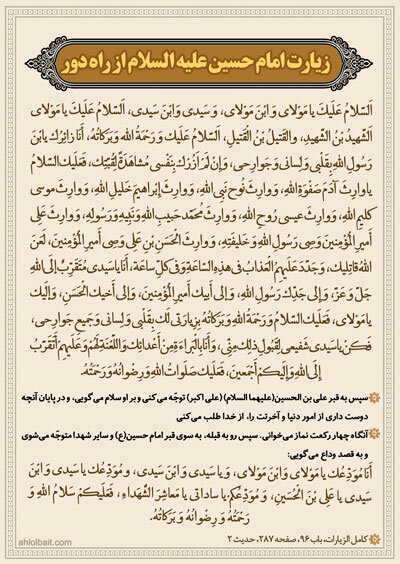 زیارت امام حسین علیه السلام از راه دور
اَلسَّلامُ عَلَيْكَ يا مَوْلاىَ وَابْنَ مَوْلاىَ، وَ سَيِّدى وَابْنَ سَيِّدى، اَلسَّلامُ عَلَيْكَ يا مَوْلاىَ
الشَّهيدُ بْنُ الشَّهيدِ، والقَتيلُ بْنُ الْقَتيلِ، اَلسَّلامُ عَلَيْكَ وَ رَحْمَةُ اللهِ وَ بَرَكاتُهُ، أَنَا زائِرُكَ يابْنَ
رَسُولِ اللهِ بِقَلْبى وَ لِسانى وَ جَوارِحى، وَ إِنْ لَمْ أَزُرْكَ بِنَفْسى مُشاهَدَةً لِقُبَّتِكَ، فَعَلَيْكَ السَّلامُ
يا وارِثَ آدَمَ صَفْوَةِ اللهِ، وَ وارِثَ نُوح نَبِىِّ اللهِ، وَ وارِثَ إِبْراهيمَ خَليلِ اللهِ، وَ وارِثَ مُوسى
كَليمِ اللهِ، وَ وارِثَ عيسى رُوحِ اللهِ، وَ وارِثَ مُحَمَّد حَبيبِ اللهِ وَ نَبِيِّهِ وَ رَسُولِهِ، وَ وارِثَ عَلِىّ
أَميرِ الْمُؤْمِنينَ وَصِىِّ رَسُولِ اللهِ وَ خَليفَتِهِ، وَ وارِثَ الْحَسَنِ بْنِ عَلِىّ وَصِىِّ أَميرِ الْمُؤْمِنينَ، لَعَنَ
اللهُ قاتِليكَ، وَ جَدَّدَ عَلَيْهِمُ الْعَذابَ فى هذِهِ السّاعَةِ وَ فى كُلِّ ساعَة، أَنَا يا سَيِّدى مُتَقَرِّبٌ إِلَى اللهِ
جَلَّ وَ عَزَّ، وَ إِلى جَدِّكَ رَسُولِ اللهِ، وَ إِلى أَبيكَ أَميرِ الْمُؤْمِنينَ، وَ إِلى أَخيكَ الْحَسَنِ، وَ إِلَيْكَ
يا مَوْلاىَ، فَعَلَيْكَ السَّلامُ وَ رَحْمَةُ اللهِ وَ بَرَكاتُهُ بِزِيارَتى لَكَ بِقَلْبى وَ لِسانى وَ جَميعِ جَوارِحى،
فَكُنْ يا سَيِّدى شَفيعى لِقَبُولِ ذلِكَ مِنّى، وَ أَنَا بِالْبَراءَةِ مِنْ أَعْدائِكَ وَ اللَّعْنَةِ لَهُمْ وَ عَلَيْهِمْ أَتَقَرَّبُ
إِلَى اللهِ وَ إِلَيْكُمْ أَجْمَعينَ، فَعَلَيْكَ صَلَواتُ اللهِ وَ رِضْوانُهُ وَ رَحْمَتُهُ.
سپس به قبر علی بن الحسین(علیهما السلام) (علی اکبر) توجّه می‌کنی و بر او سلام می‌گویی، و در پایان آنچه
دوست داری از امور دنیا و آخرتت را، از خدا طلب می‌کنی
آنگاه چهار رکعت نماز می‌خوانی. سپس رو به قبله، به سوی قبر امام حسین(ع) و سایر شهدا متوجّه می‌شوی
و به قصد وداع می‌گویی:
أَنَا مُوَدِّعُكَ يا مَوْلاىَ وَابْنَ مَوْلاىَ، وَ يا سَيِّدى وَابْنَ سَيِّدى، وَ مُوَدِّعُكَ يا سَيِّدى وَابْنَ
سَيِّدى يا عَلِىَّ بْنَ الْحُسَيْنِ، وَ مُوَدِّعُكُمْ يا ساداتى يا مَعاشِرَ الشُّهَداءِ، فَعَلَيْكُمْ سَلامُ اللهِ وَ
رَحْمَتُهُ وَ رِضْوانُهُ وَ بَرَكاتُهُ.
کامل الزیارات، باب ۹۶، صفحه ۲۸۷، حدیث ۲
ahlolbait.com